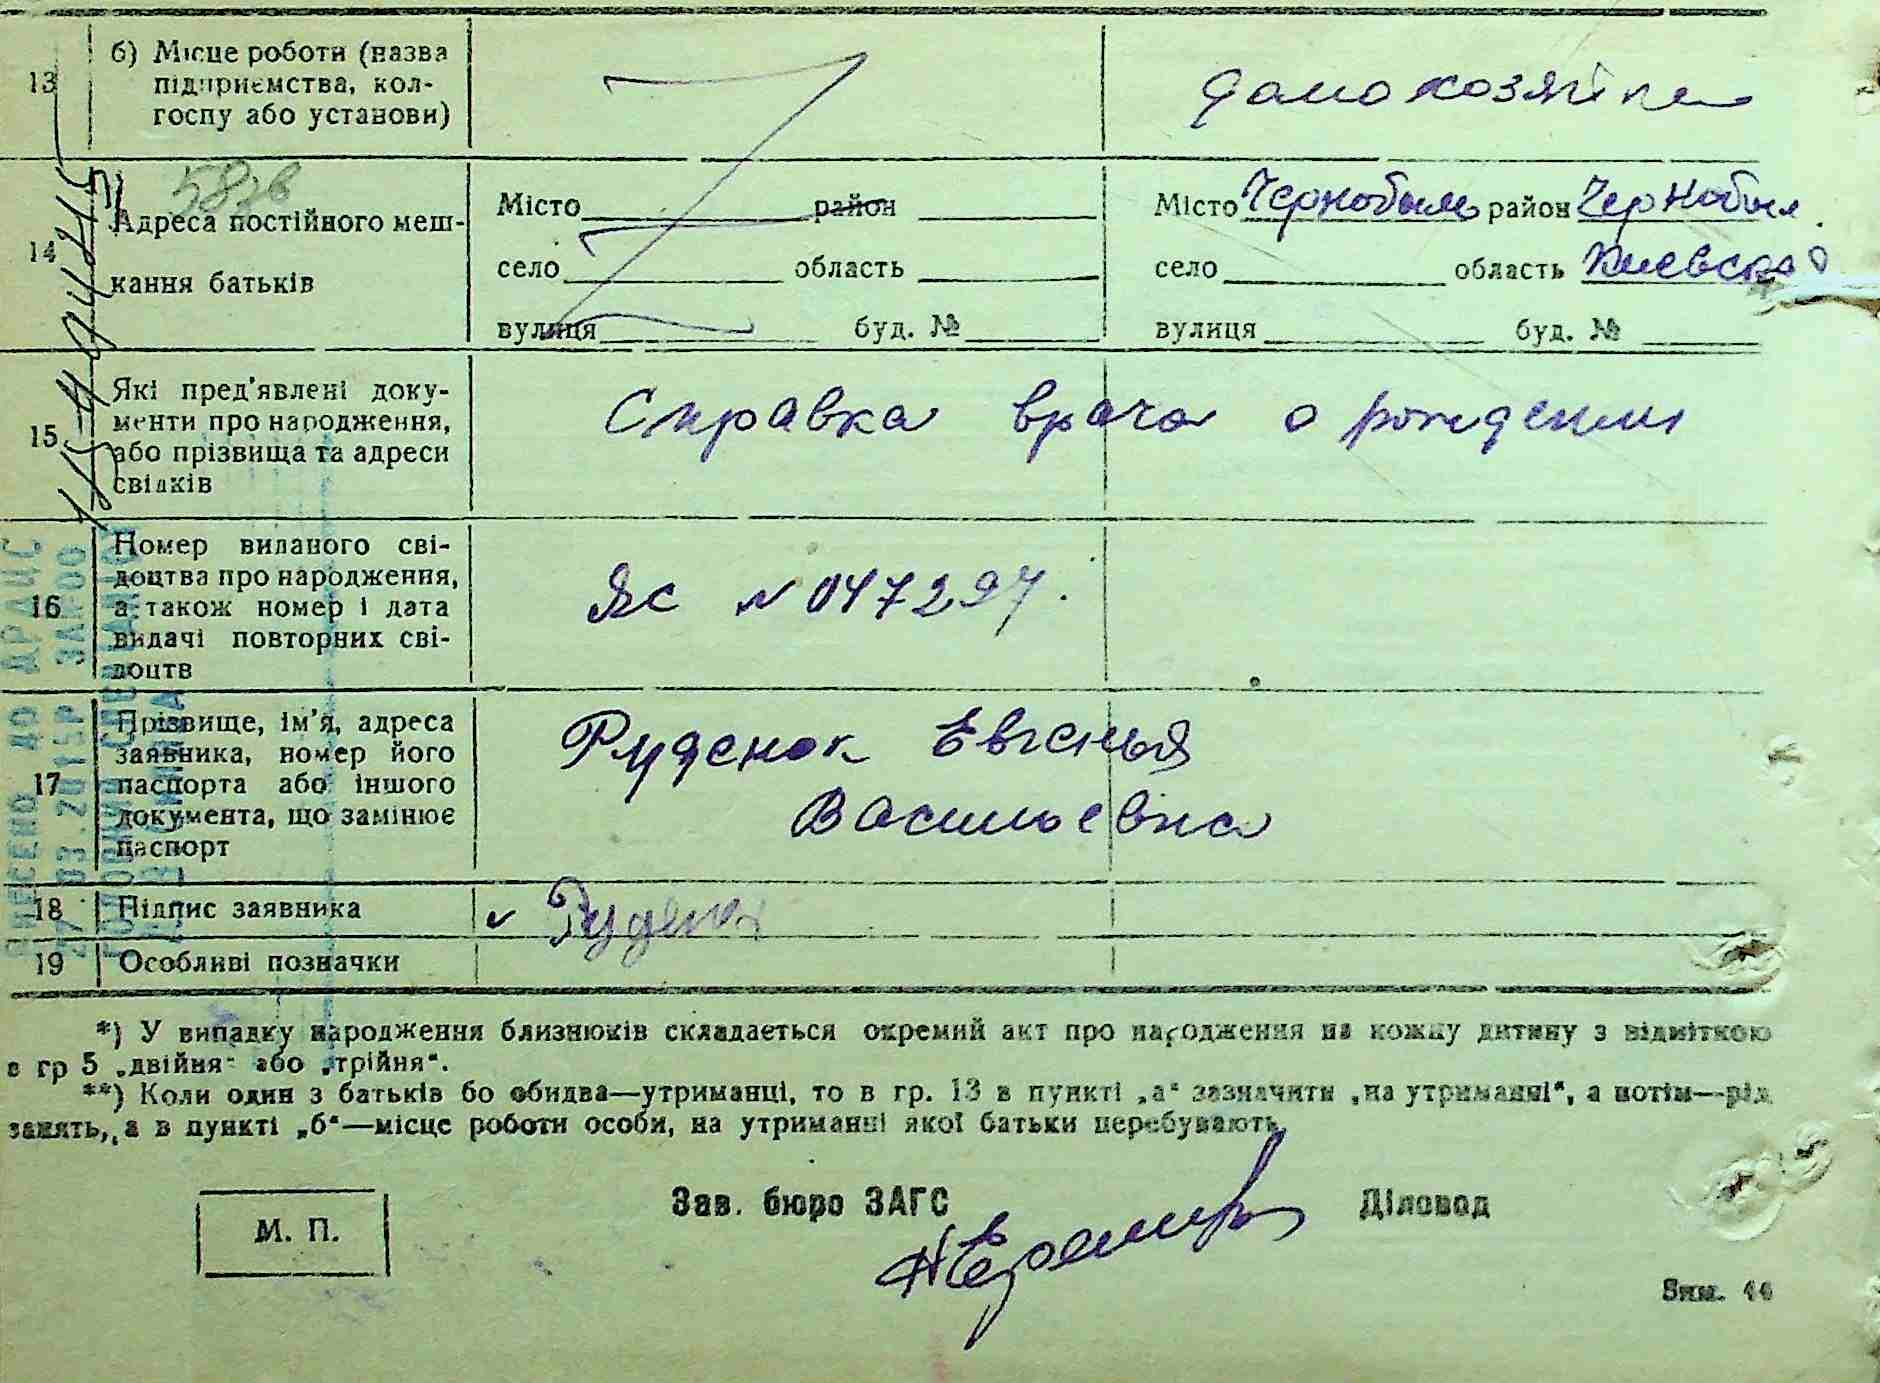 13
б) Місце роботи (назва
підприємства, кол-
госпу або установи)
домохозяйка
14
Адреса постійного меш-
кання батьків
Місто район
село область
вулиця буд. №
Місто Чернобыль район Чернобыл
село область Киевская
вулиця буд. №
15
Які пред'явлені доку-
менти про народження,
або прізвища та адреси
свідків
Справка врача о рождении
16
Номер виданого сві-
доцтва про народження,
а також номер і дата
видачі повторних сві-
доцтв
ЯС № 047297.
17
Прізвище, ім'я, адреса
заявника, номер його
паспорта або іншого
документа, що замінює
паспорт
Руденок Евгенья
Васильевна
18
Підпис заявника
Руденок
19
Особливі позначки
*) У випадку народження близнюків складається окремий акт про народження на кожну дитину з відміткою
в гр 5 „двійня" або „трійня".
**) Коли один з батьків бо обидва—утриманці, то в гр. 13 в пункті „а" зазначити „на утриманні", а потім—рід
занять, а в пункті „б"—місце роботи особи, на утриманні якої батьки перебувають.
Зав. бюро ЗАГС
Діловод
М. П.
Зим. 44
ВНЕСЕНО ДО ДРАЦС
27.03.2015Р